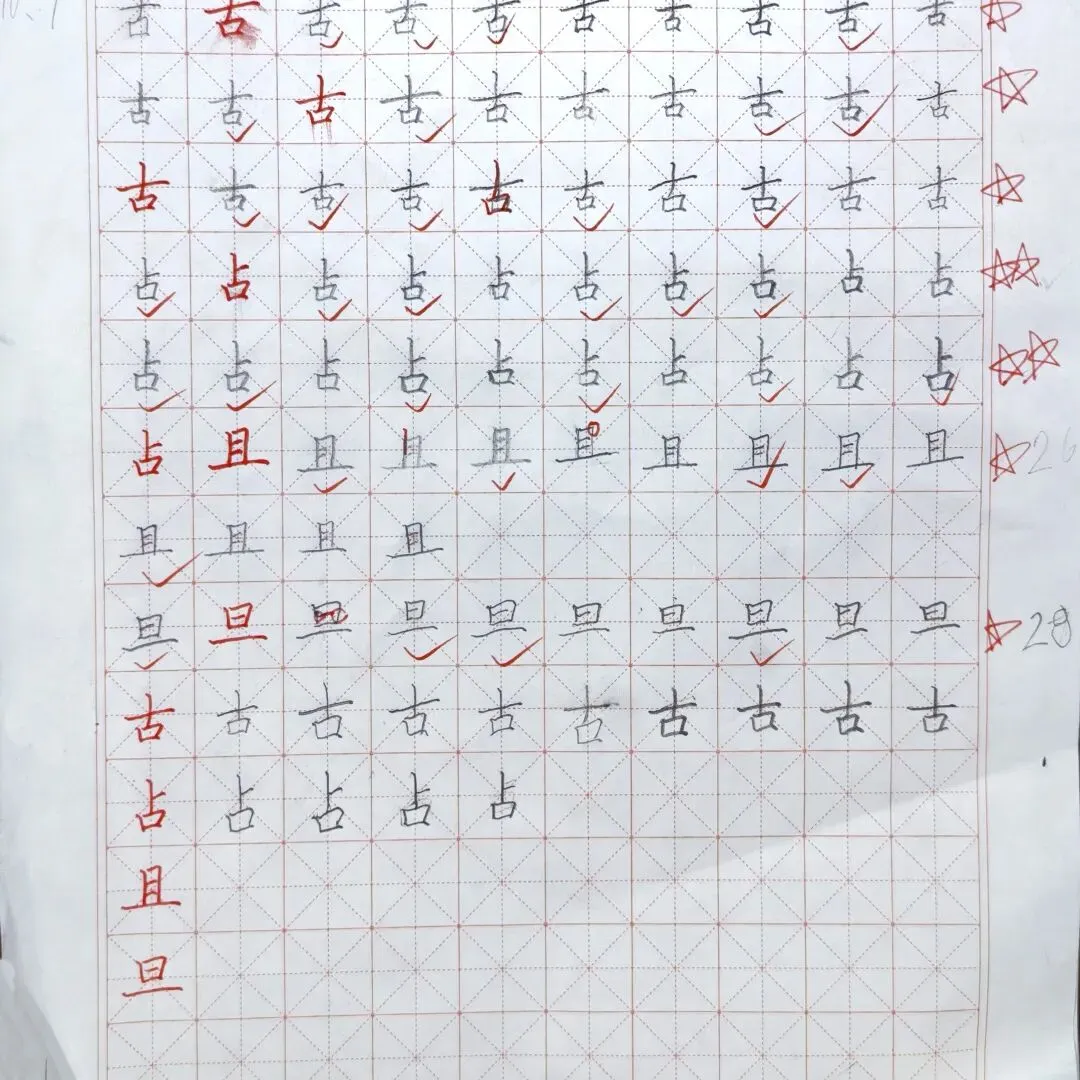 古古古古古古古古古古
古古古古古古古古古古
古古古古古古古古古古
占占占占占占占占占占
占占占占占占占占占占
占且且且且且且且且且 26
且且且且
旦旦旦旦旦旦旦旦旦旦 28
古古古古古古古古古古
占占占占占
且
旦